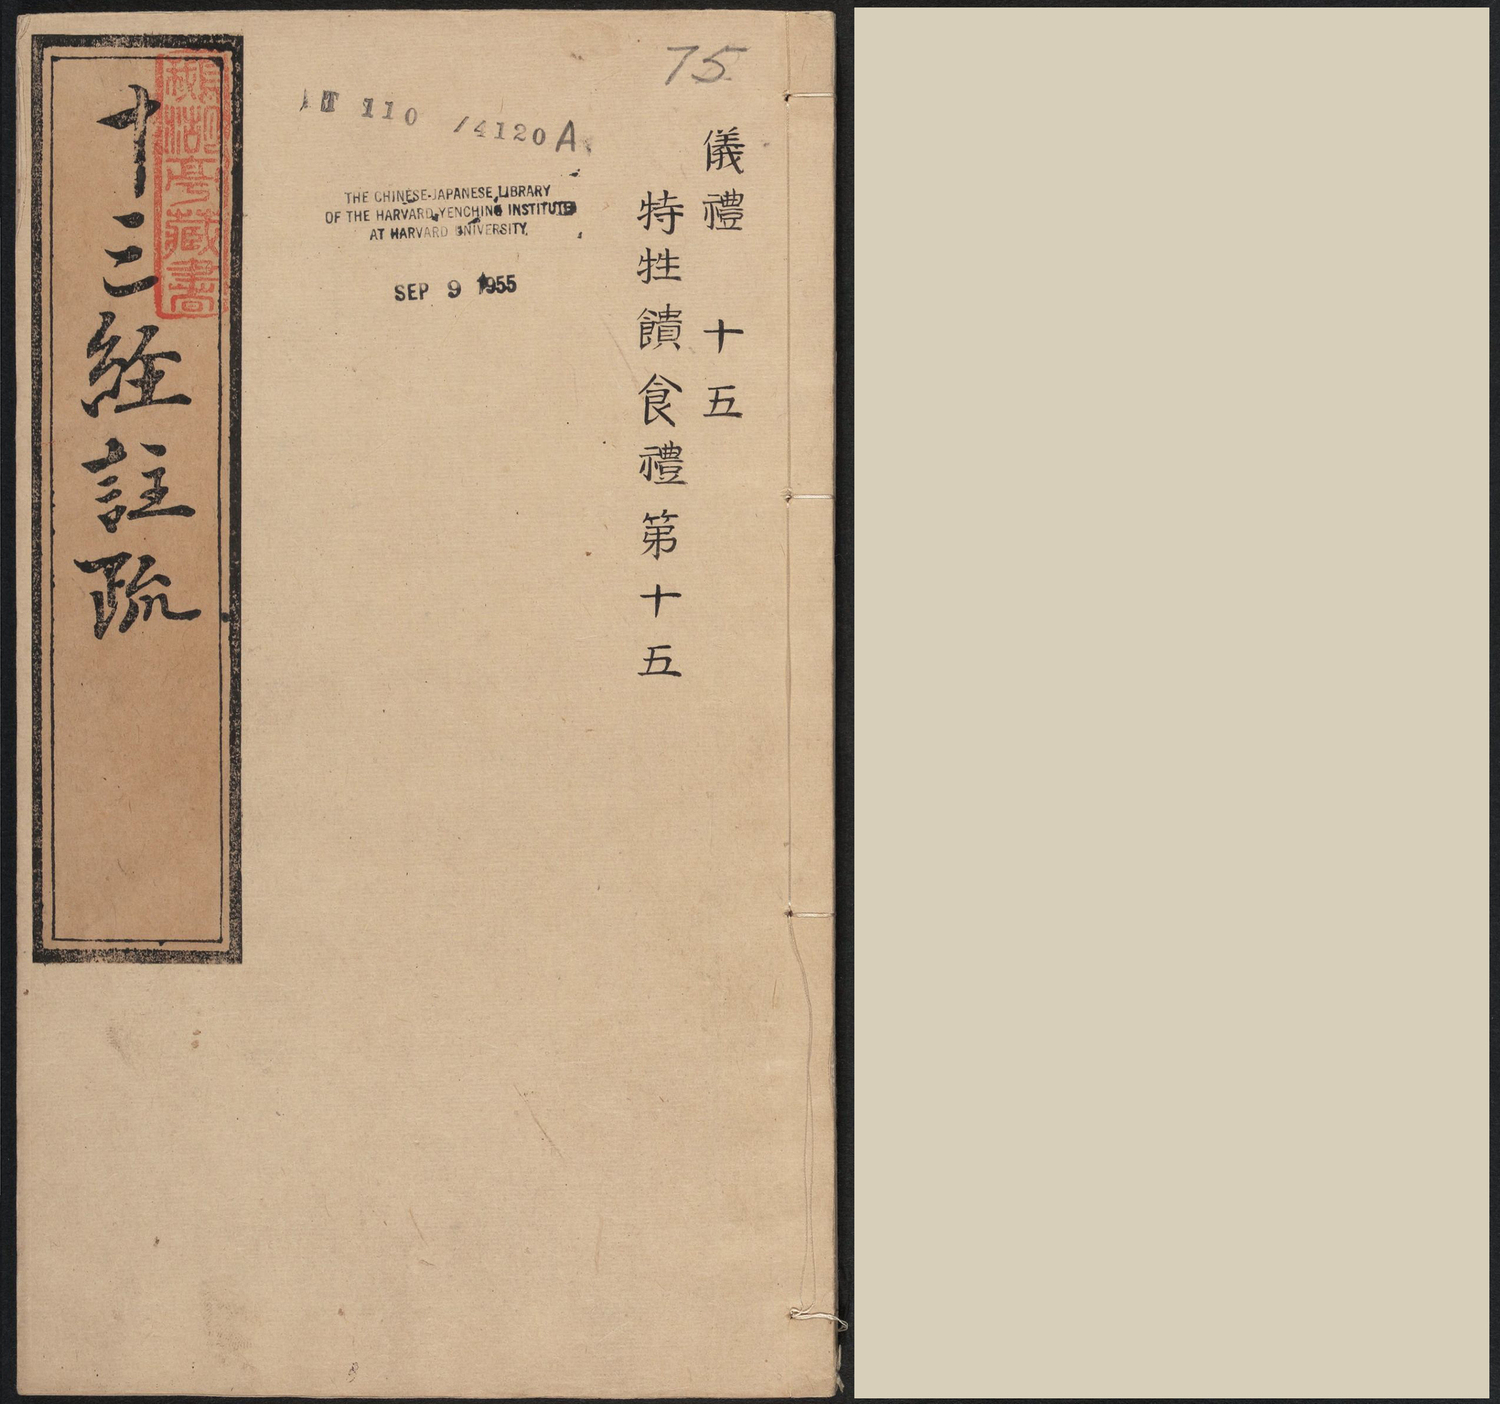 75
儀禮 十五
特牲饋食禮第十五
T 110 /4120 A
THE CHINESE-JAPANESE LIBRARY
OF THE HARVARD-YENCHING INSTITUTE
AT HARVARD UNIVERSITY
SEP 9 1955
十三經註疏
湖亭藏書